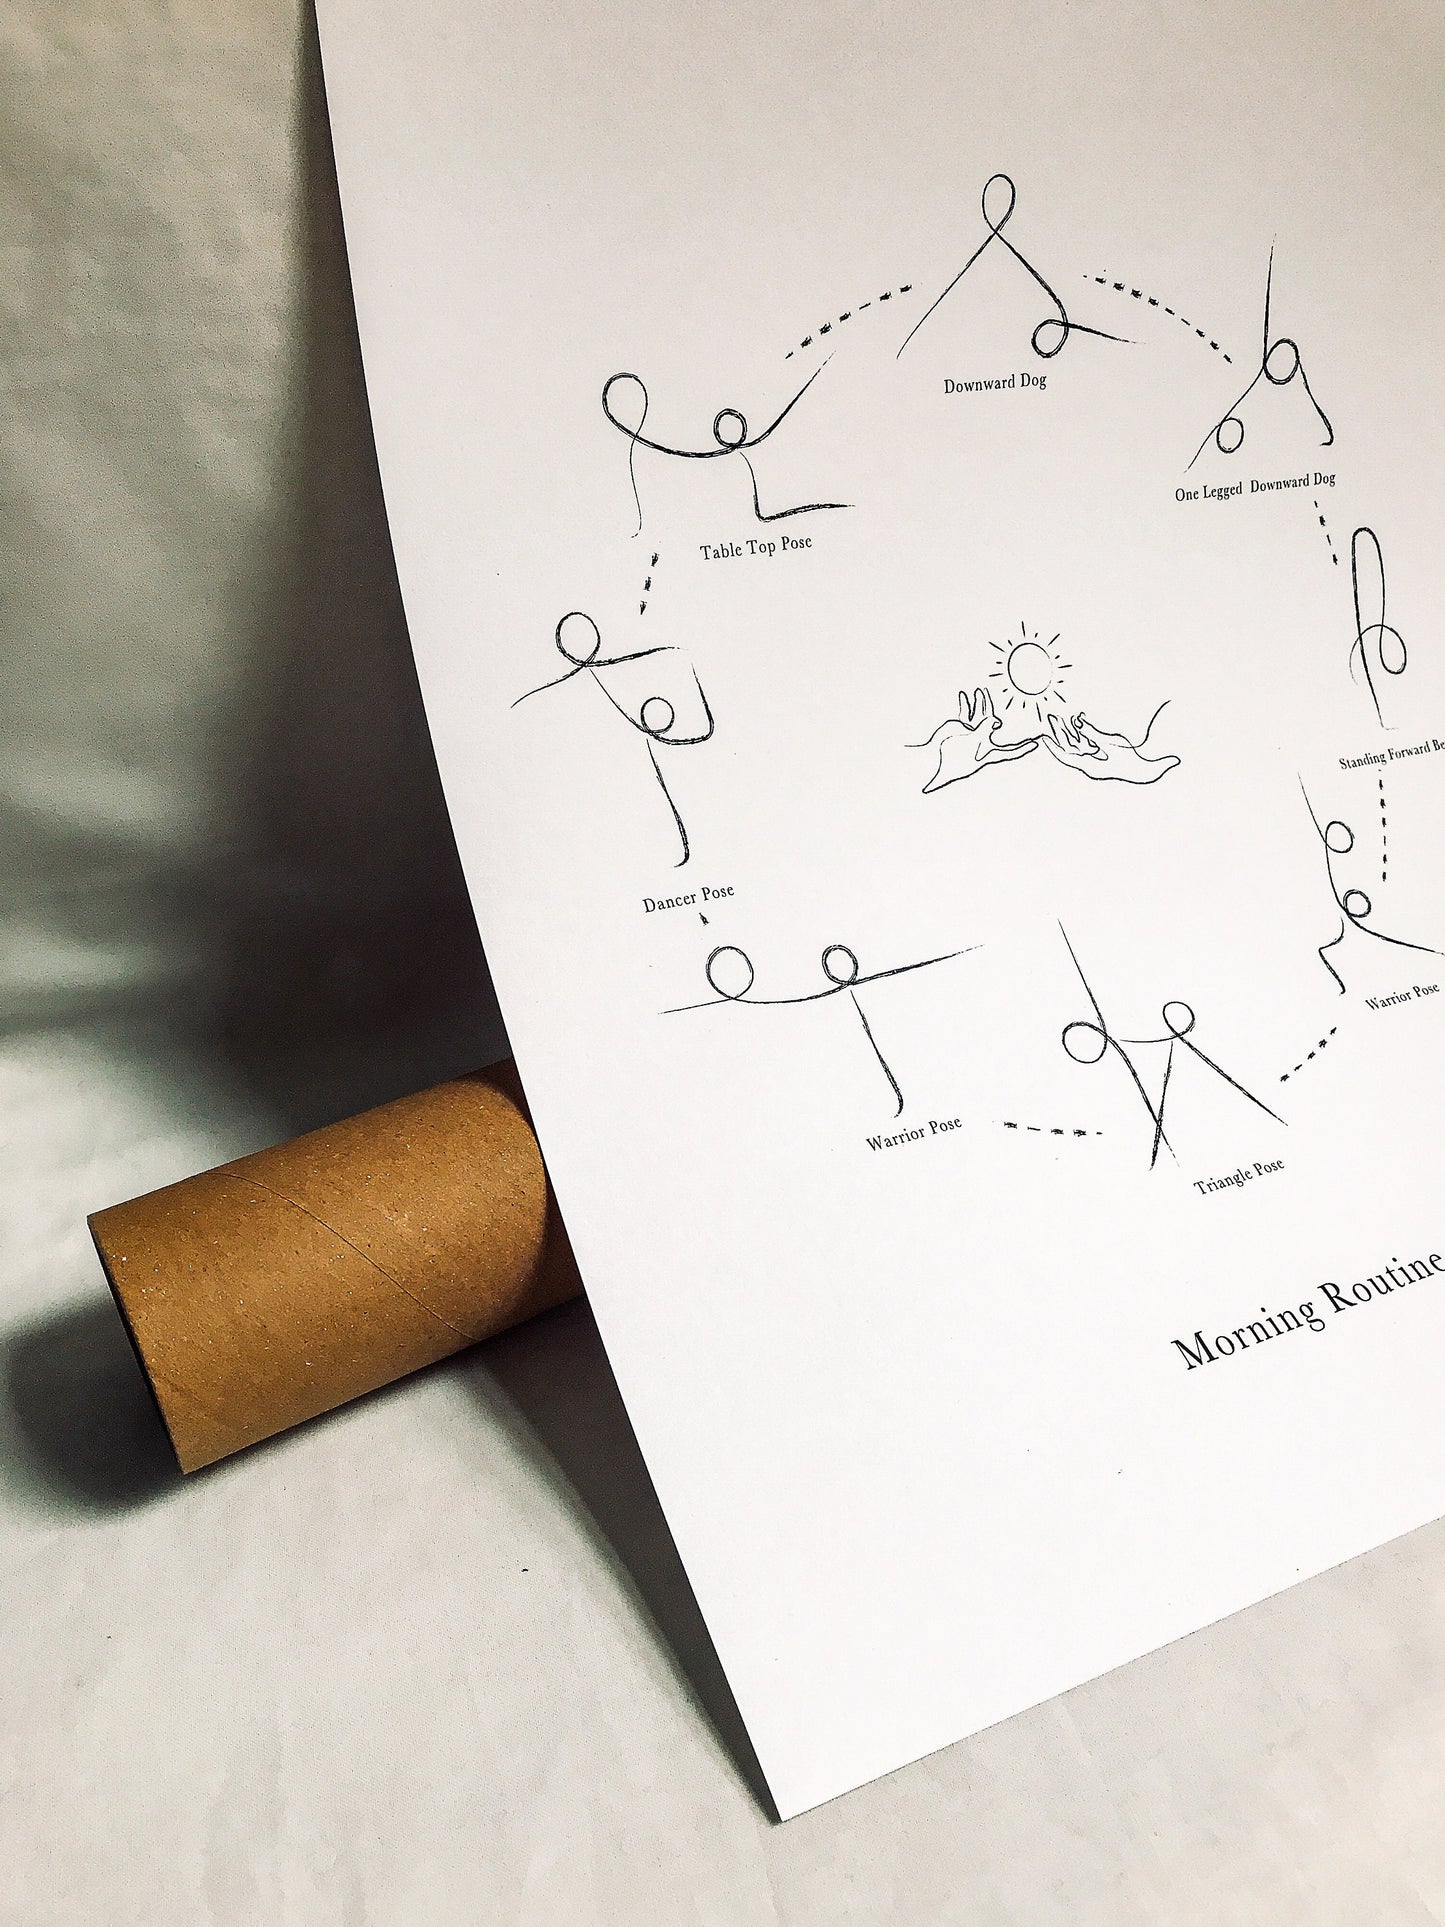 Downward Dog
One Legged Downward Dog
Table Top Pose
Standing Forward Be
Dancer Pose
Warrior Pose
Warrior Pose
Triangle Pose
Morning Routine